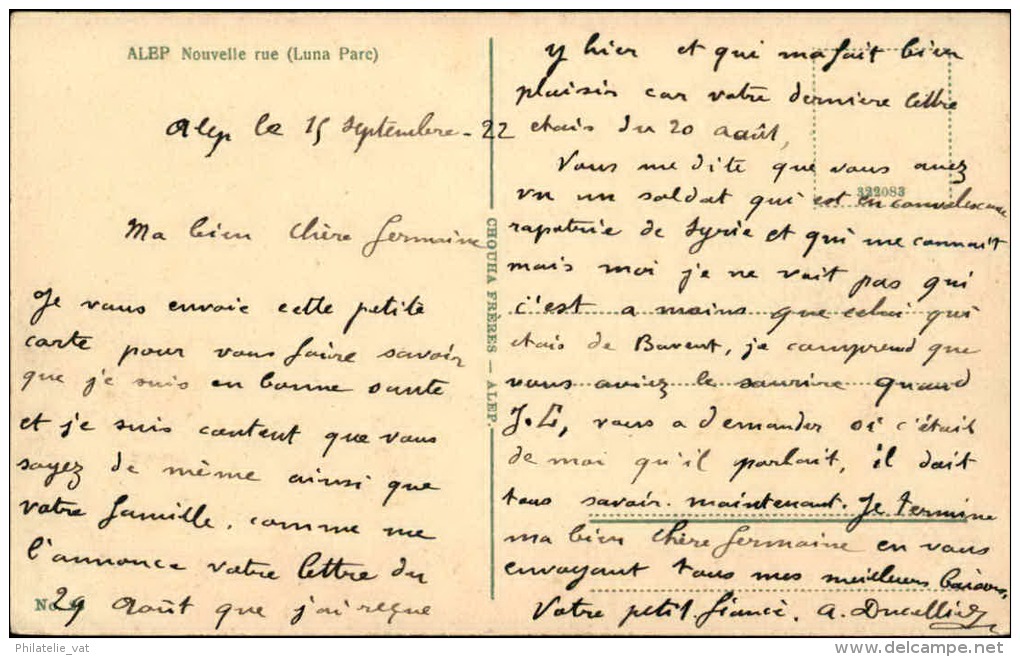 ALEP Nouvelle rue (Luna Parc)
Alep le 15 Septembre - 22
Ma bien Chère Germaine
Je vous envoie cette petite
carte pour vous faire savoir
que je suis en bonne sante
et je suis content que vous
soyez de même ainsi que
votre famille. comme me
l'annonce votre lettre du
29 Août que j'ai reçue
No
CHOUHA FRÈRES — ALEP.
y hier et qui ma fait bien
plaisir car votre derniere lettre
etais du 20 août,
Vous me dite que vous avez
vu un soldat qui est en convalescence
322083
rapatrie de Syrie et qui me connait
mais moi je ne voit pas qui
c'est a moins que celui qui
etais de Bavent, je comprend que
vous aviez le sourire quand
J.L, vous a demander si c'était
de moi qu'il parlait, il doit
tous savoir maintenant. Je termine
ma bien Chère Germaine en vous
envoyant tous mes meilleurs baisers,
Votre petit fiancé. A.